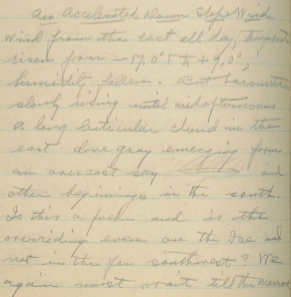 An Accelerated Down Slope Wind.
Wind from the east all day, temperature
risen from -17.0° to +9.0°,
humidity fallen. But barometer
slowly rising until midafternoon.
A long lenticular cloud in the
east dove gray emerging from
an overcast sky and
other beginnings in the south.
Is this a foehn and is the
overriding even over the Ice and
not in the far southwest? We
again must wait till the morrow